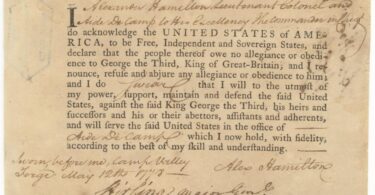 I Alexander Hamilton Lieutenant Colonel and
Aide De Camp to His Excellency The Commander in Chief
do acknowledge the UNITED STATES of AME-
RICA, to be Free, Independent and Sovereign States, and
declare that the people thereof owe no allegiance or obedi-
ence to George the Third, King of Great-Britain; and I re-
nounce, refuse and abjure any allegiance or obedience to him;
and I do Swear that I will to the utmost of
my power, support, maintain and defend the said United
States, against the said King George the Third, his heirs
and successors and his or their abettors, assistants and adherents,
and will serve the said United States in the office of
Aide De Camp which I now hold, with fidelity,
according to the best of my skill and understanding.
Sworn before me, Camp Valley
Forge May 12th 1778
Alex Hamilton
Stirling Major Genl